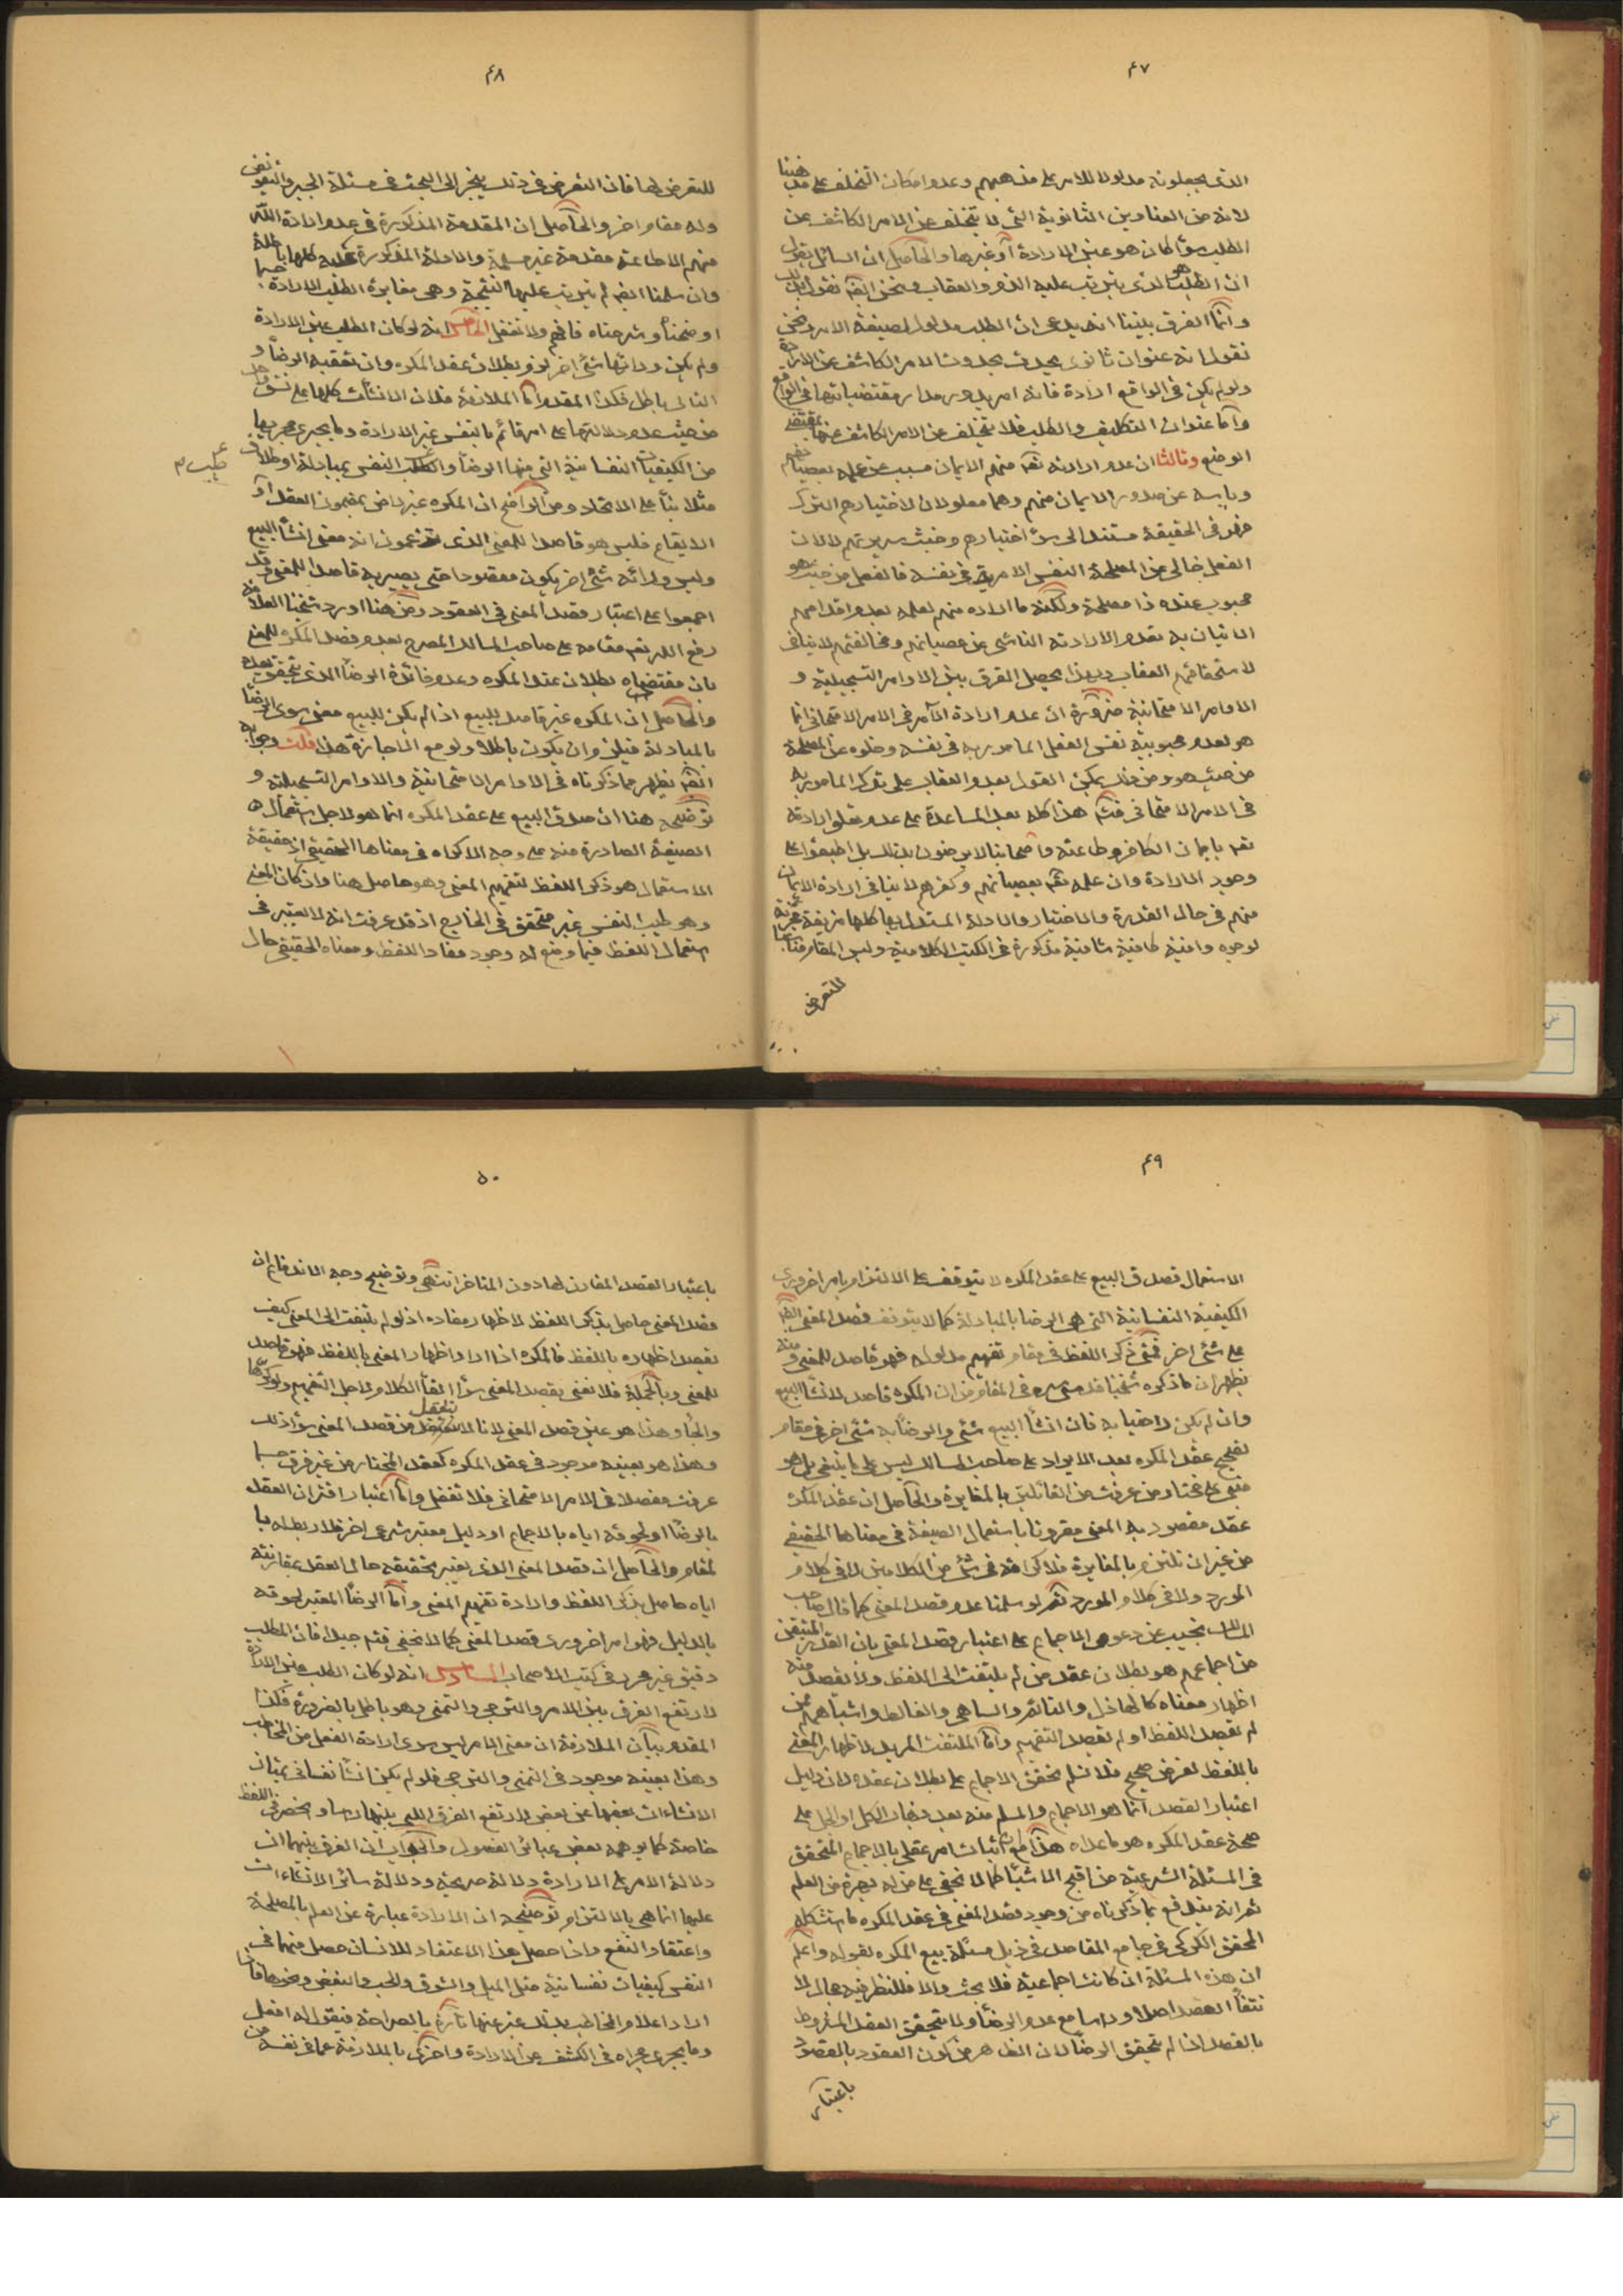 ٤٧
الذى يجعلونه مدلولا للامر على مذهبهم وعدم امكان التخلف على مذهبنا
لانه من العناوين الثانوية التى لا تتخلف عن الامر الكاشف عن
الطلب سواء كان هو عين الارادة او غيرها والحاصل ان السائل يقول
ان الطلب هو الذى يترتب عليه الذم والعقاب ونحن ايضا نقول بذلك
وانما الفرق بيننا انه يدعى ان الطلب مدلول لصيغة الامر ونحن
نقول انه عنوان ثانوى يحدث بحدوث الامر الكاشف عن الارادة
ولو لم يكن فى الواقع ارادة فانه امر يدور مدار مقتضياتها فى الواقع
واما عنوان التكليف والطلب فلا يتخلف عن الامر الكاشف عنها بمقتضى
الوضع وثالثا ان عدم ارادته تعالى منهم الايمان مسبب عن علمه بعصيانهم
ويأسه عن صدور الايمان منهم وهما معلولان لاختيارهم الترك
فهو فى الحقيقة مستند الى سوء اختيارهم وخبث سريرتهم لا لان
الفعل خالى عن المصلحة النفس الامرية فى نفسه فالفعل من حيث هو
محبوب عنده ذا مصلحة ولكنه ما اراده منهم لعلمه بعدم اقدامهم
الاتيان به فعدم الارادة الناشى عن عصيانهم ومخالفتهم لا ينافى
لاستحقاقهم العقاب وبهذا يحصل الفرق بين الاوامر التسجيلية و
الاوامر الامتحانية ضرورة ان عدم ارادة الآمر فى الامر الامتحانى انما
هو لعدم محبوبية نفس الفعل المامور به فى نفسه وخلوه عن المصلحة
من حيث هو ومن ذلك يمكن القول بعدم العقاب على ترك المامور به
فى الامر الامتحانى فتدبر هذا كله بعد المساعدة على عدم تعلق ارادته
تعالى بايمان الكافر وطاعته واصحابنا لا يرضون بذلك بل اطبقوا على
وجود الارادة وان علمه تعالى بعصيانهم وكفرهم لا ينافى ارادة الايمان
منهم فى حال القدرة والاختيار والادلة المستدل بها كلها مزيفة مجزية
لوجوه وافية كافية شافية مذكورة فى الكتب الكلامية وليس المقام مقتضيا
للتعرض
٤٨
للتعرض لها فان التعرض فى ذلك ينجر الى البحث فى مسئلة الجبر والتفويض
وله مقام اخر والحاصل ان المقدمة المذكورة فى عدم ارادة الله
منهم الاطاعة مقدمة غير مسلمة والادلة المذكورة عليه كلها باطلة
وان سلمنا ايضا لم يترتب عليها النتيجة وهى مغايرة الطلب للارادة حسبما
اوضحناه وشرحناه فافهم ولا تغفل الخامس انه لو كان الطلب عين الارادة
ولم يكن ورائها شئ اخر لزم بطلان عقد المكره وان تعقبه الرضا و
التالى باطل فكذا المقدم اما الملازمة فلان الانشآت كلها على نسق واحد
من حيث عدم دلالتها على امر قائم بالنفس غير الارادة وما يجرى مجريها
من الكيفيات النفسانية التى منها الرضا وطلب النفس بمبادلة او طلاق
طيب م
مثلا بناء على الاتحاد ومن الواضح ان المكره غير راض بمضمون العقد او
الايقاع فليس هو قاصدا للمعنى الذى تزعمون انه معنى انشاء البيع
وليس ورائه شئ اخر يكون مقصودا حتى يصير به قاصدا للمعنى وقد
اجمعوا على اعتبار قصد المعنى فى العقود ومن هنا اورد شيخنا العلامة
رفع الله تعالى مقامه على صاحب المسالك المصرح بعدم قصد المكره للمعنى
بان مقتضاه بطلان عقد المكره وعدم فائدة الرضا الذى يتحقق بعده
والحاصل ان المكره غير قاصد للبيع اذا لم يكن للبيع معنى سوى الرضا
بالمبادلة فيلزم ان يكون باطلا ولو مع الاجازة هذا قلت وجوابه
ايضا يظهر مما ذكرناه فى الاوامر الامتحانية والاوامر التسجيلية و
توضيحه هنا ان صدق البيع على عقد المكره انما هو لاجل استعماله
الصيغة الصادرة منه على وجه الاكراه فى معناها الحقيقى اذ حقيقة
الاستعمال هو ذكر اللفظ لتفهيم المعنى وهو حاصل هنا واذ كان المعنى
وهو طيب النفس غير متحقق فى الخارج اذ قد عرفت انه لا يعتبر فى
استعمال اللفظ فيما وضع له وجود مفاد اللفظ ومعناه الحقيقى حال
٤٩
الاستعمال فصدق البيع على عقد المكره لا يتوقف على الالتزام بامر اخر ورى
الكيفية النفسانية التى هى الرضا بالمبادلة كما لا يتوقف قصد المعنى ايضا
على شئ اخر فمتى ذكر اللفظ فى مقام تفهيم مدلوله فهو قاصد للمعنى ومنه
يظهر ان ما ذكره شيخنا قدس سره فى المقام من ان المكره قاصد لانشاء البيع
وان لم يكن راضيا به فان انشاء البيع شئ والرضا به شئ اخر فى مقام
تصحيح عقد المكره بعد الايراد على صاحب المسالك ليس على ما ينبغى بل هو
مبنى على مختار من عرفت من القائلين بالمغايرة والحاصل ان عقد المكره
عقد مقصود به المعنى مقرونا باستعمال الصيغة فى معناها الحقيقى
من غير ان نلتزم بالمغايرة فلا كرامة فى شئ من الكلامين لا فى كلام
المورد ولا فى كلام المورد ثم لو سلمنا عدم قصد المعنى كما قال صاحب
المسالك نجيب عن دعوى الاجماع على اعتبار قصد المعنى بان القدر المتيقن
من اجماعهم هو بطلان عقد من لم يلتفت الى اللفظ ولا يقصد منه
اظهار معناه كالهاذل والنائم والساهى والغالط واشباههم ممن
لم يقصد اللفظ او لم يقصد التفهيم واما الملتفت المريد لاظهار المعنى
باللفظ لغرض صحيح فلا نسلم تحقق الاجماع على بطلان عقده لان دليل
اعتبار القصد انما هو الاجماع والمسلم منه بعد ذهاب الكل او الجل على
صحة عقد المكره هو ما عداه هذا مع ان اثبات امر عقلى بالاجماع المتحقق
فى المسئلة الشرعية من اقبح الاشياء كما لا يخفى على من له بصيرة من العلم
ثم انه يندفع بما ذكرناه من وجود قصد المعنى فى عقد المكره ما استشكله
المحقق الكركى فى جامع المقاصد فى ذيل مسئلة بيع المكره بقوله واعلم
ان هذه المسئلة ان كانت اجماعية فلا بحث والا فللنظر فيه مجال لا
نتفاء القصد اصلا وراسا مع عدم الرضا ولما يتحقق العقد المشروط
بالقصد اذا لم يتحقق الرضا لان الظاهر من كون العقود بالقصود
باعتبار
٥٠
باعتبار القصد المقارن لها دون المتاخر انتهى وتوضيح وجه الاندفاع ان
قصد المعنى حاصل بذكر اللفظ لاظهار مفاده اذ لو لم يلتفت الى المعنى كيف
يقصد اظهاره باللفظ فالمكره اذا اراد اظهار المعنى باللفظ فهو قاصد
للمعنى وبالجملة فلا نعنى بقصد المعنى سوى القاء الكلام لاجل التفهيم ولو كرها
والجأ وهذا هو عين قصد المعنى لانا لا نتعقل من قصد المعنى سوى ذلك
وهذا هو بعينه موجود فى عقد المكره كعقد المختار من غير فرق حسبما
عرفت مفصلا فى الامر الامتحانى فلا تغفل واما اعتبار اقتران العقد
بالرضا او لحوقه اياه بالاجماع او دليل معتبر شرعى اخر فلا ربط له با
لمقام والحاصل ان قصد المعنى الذى يعتبر تحقيقه حال العقد بمقارنته
اياه حاصل بذكر اللفظ وارادة تفهيم المعنى واما الرضا المعتبر لحوقه
بالدليل فهو امر اخر ورى قصد المعنى كما لا يخفى فتدبر جيدا فان المطلب
دقيق غير محرر فى كتب الاصحاب السادس انه لو كان الطلب عين الارادة
لارتفع الفرق بين الامر والترجى والتمنى وهو باطل بالضرورة فكذا
المقدم بيان الملازمة ان معنى الامر ليس سوى ارادة الفعل من المخاطب
وهذا بعينه موجود فى التمنى والترجى فلو لم يكن انشاء نفسانى يمتاز
الانشاءات بعضها عن بعض لارتفع الفرق البين بينهما راسا وانحصر فى اللفظ
خاصة كما يوهمه بعض عبائر الفصول والجواب ان الفرق بينهما ان
دلالة الامر على الارادة دلالة صريحة ودلالة سائر الانشاءات
عليها انما هى بالالتزام توضيحه ان الارادة عبارة عن العلم بالمصلحة
واعتقاد النفع واذا حصل هذا الاعتقاد للانسان حصل منها فى
النفس كيفيات نفسانية مثل الميل والشوق والحب والبغض ونحوها فاذا
اراد اعلام المخاطب بذلك عبر عنها تارة بالصراحة فيقول له افعل
وما يجرى مجراه فى الكشف عن الارادة واخرى بالملازمة عما فى نفسه من